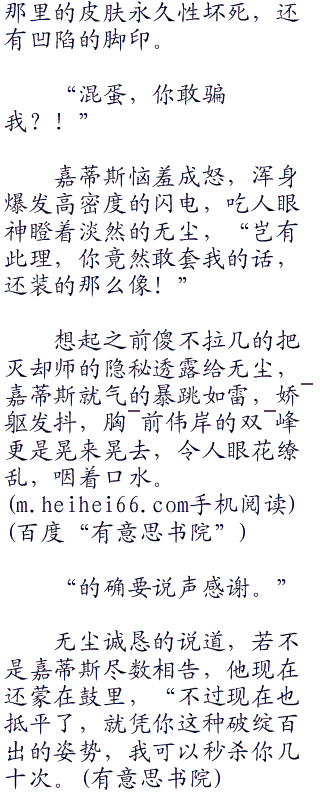 那里的皮肤永久性坏死，还
有凹陷的脚印。
“混蛋，你敢骗
我？！”
嘉蒂斯恼羞成怒，浑身
爆发高密度的闪电，吃人眼
神瞪着淡然的无尘，“岂有
此理，你竟然敢套我的话，
还装的那么像！”
想起之前傻不拉几的把
灭却师的隐秘透露给无尘，
嘉蒂斯就气的暴跳如雷，娇¯
躯发抖，胸¯前伟岸的双¯峰
更是晃来晃去，令人眼花缭
乱，咽着口水。
(m.heihei66.com手机阅读)
(百度“有意思书院”)
“的确要说声感谢。”
无尘诚恳的说道，若不
是嘉蒂斯尽数相告，他现在
还蒙在鼓里，“不过现在也
抵平了，就凭你这种破绽百
出的姿势，我可以秒杀你几
十次。(有意思书院)